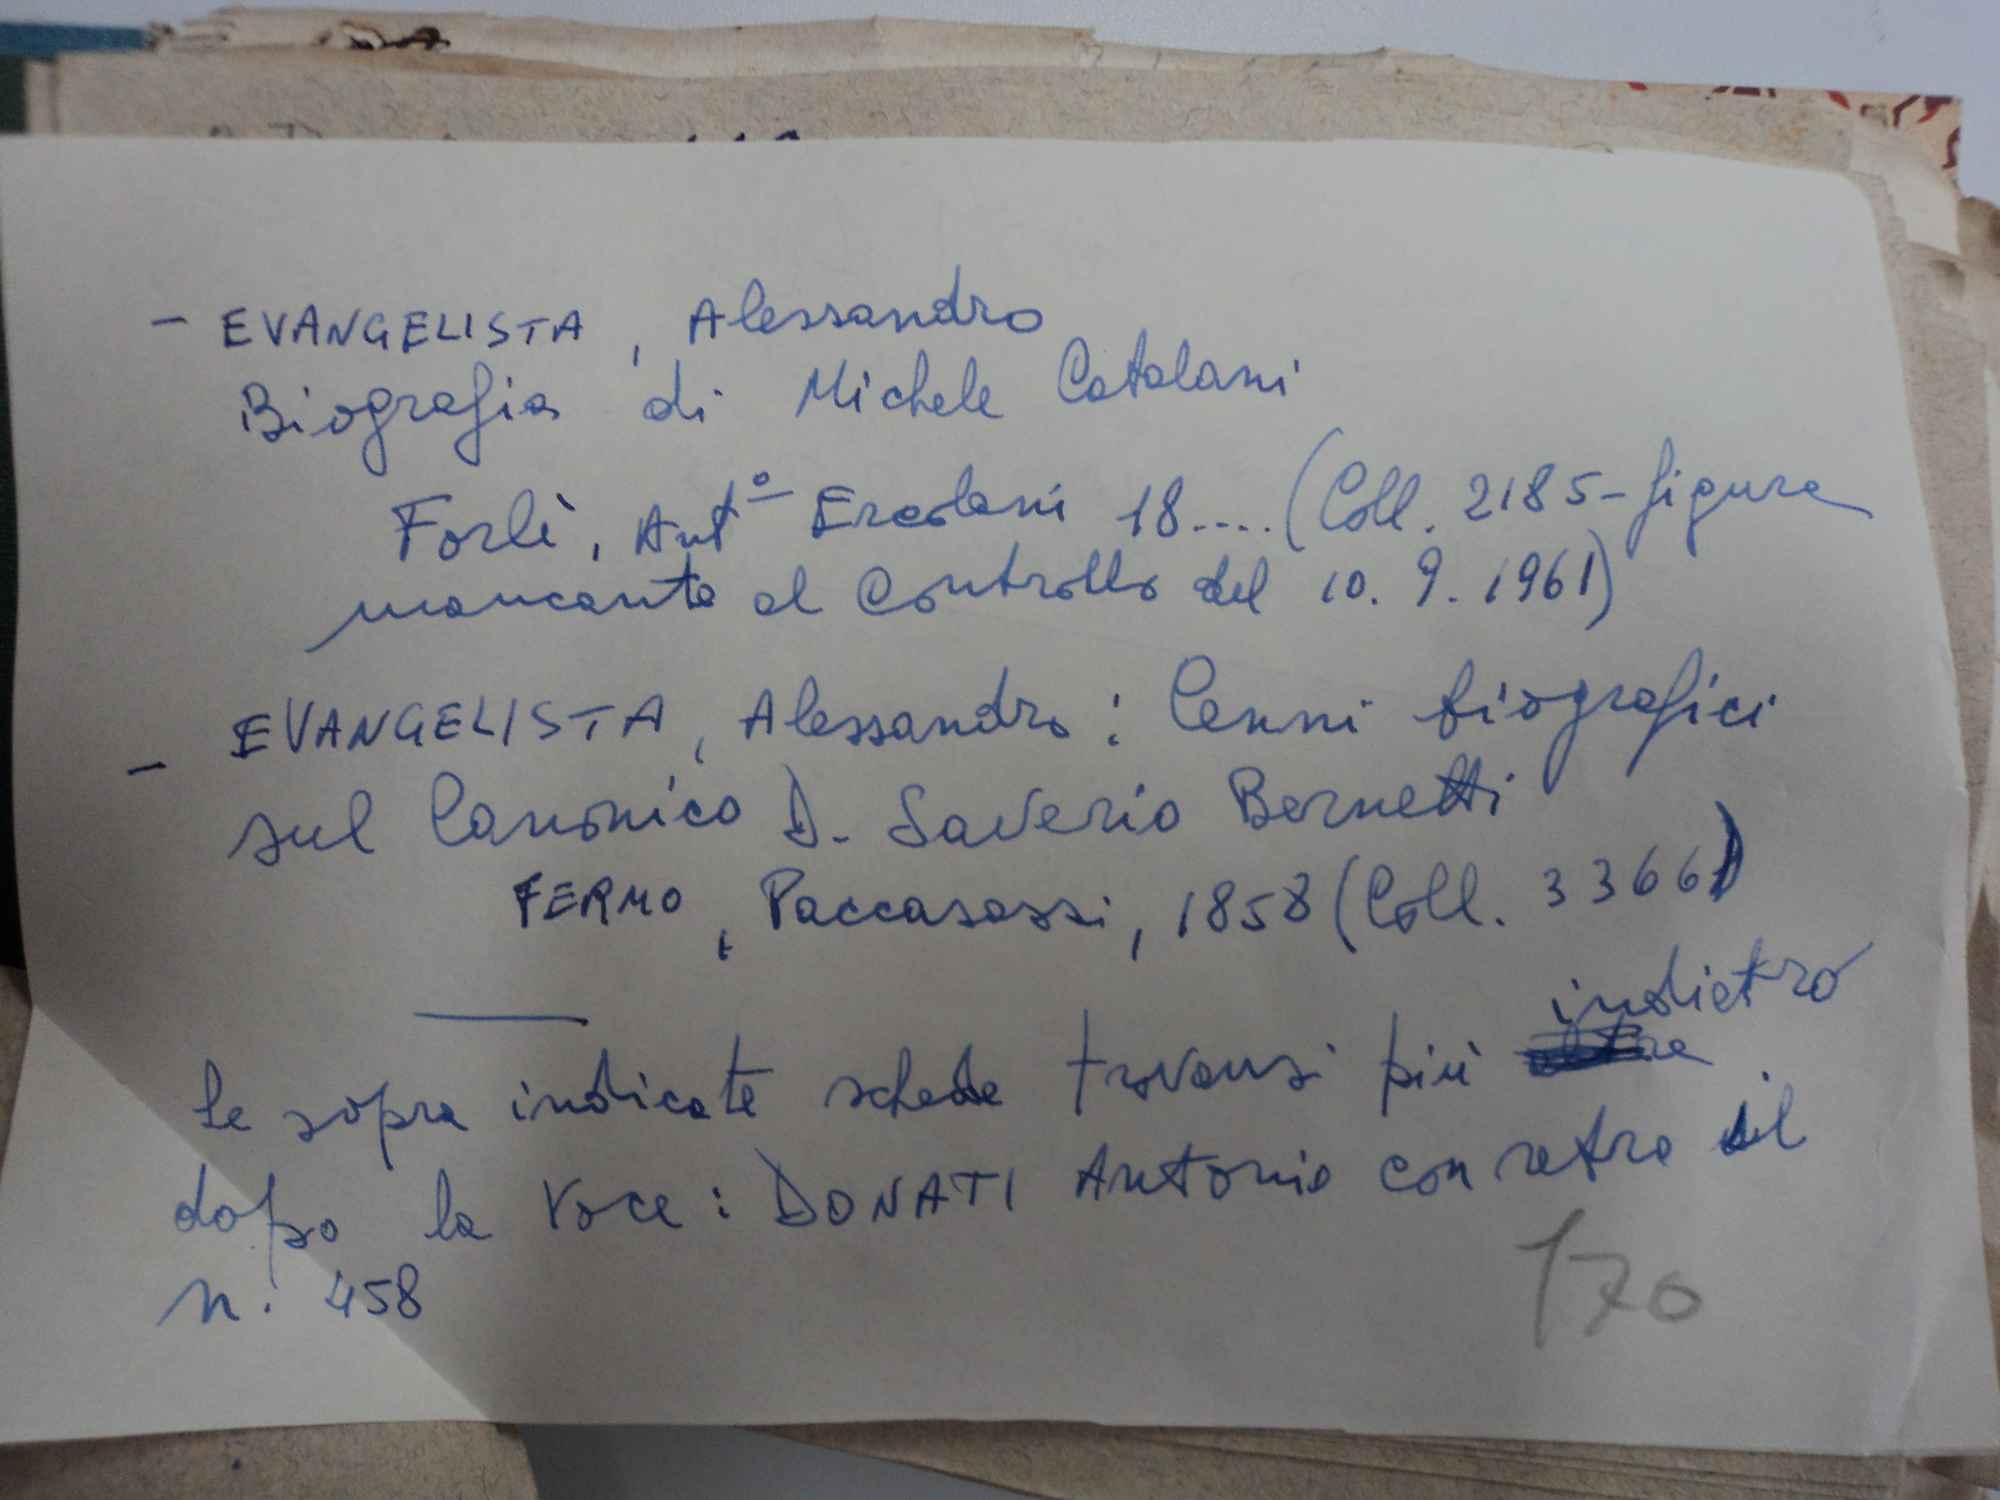 - EVANGELISTA, Alessandro
Biografia di Michele Catalani
Forlì, Antº Ercolani 18.... (Coll. 2185- figura
mancante al controllo del 10. 9. 1961)
- EVANGELISTA, Alessandro: Cenni biografici
sul Canonico D. Saverio Bernetti
FERMO, Paccasassi, 1858 (Coll. 3366)
indietro
le sopra indicate schede trovansi più
dopo la voce: DONATI Antonio con retro il
n. 458
170